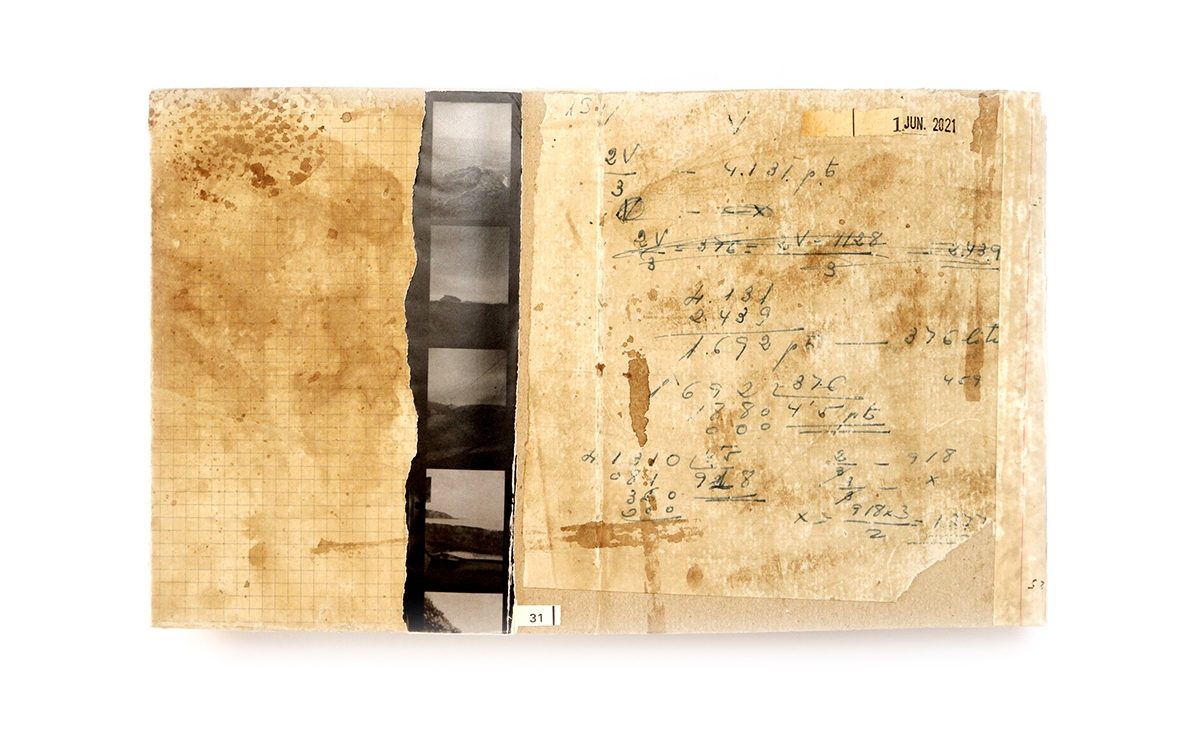 1 JUN. 2021
2V
3
— 4.131 pt
—
2V
3
— 376 = 2V — 1128
3
— 2.439
4.131
2.439
1.692 pt — 376 lts
459
1'692 376
1880 4'5 pt
000
41310 45
081 918
360
000
2
3
— 918
1
3
— x
x = 918x3
2
= 1377
31